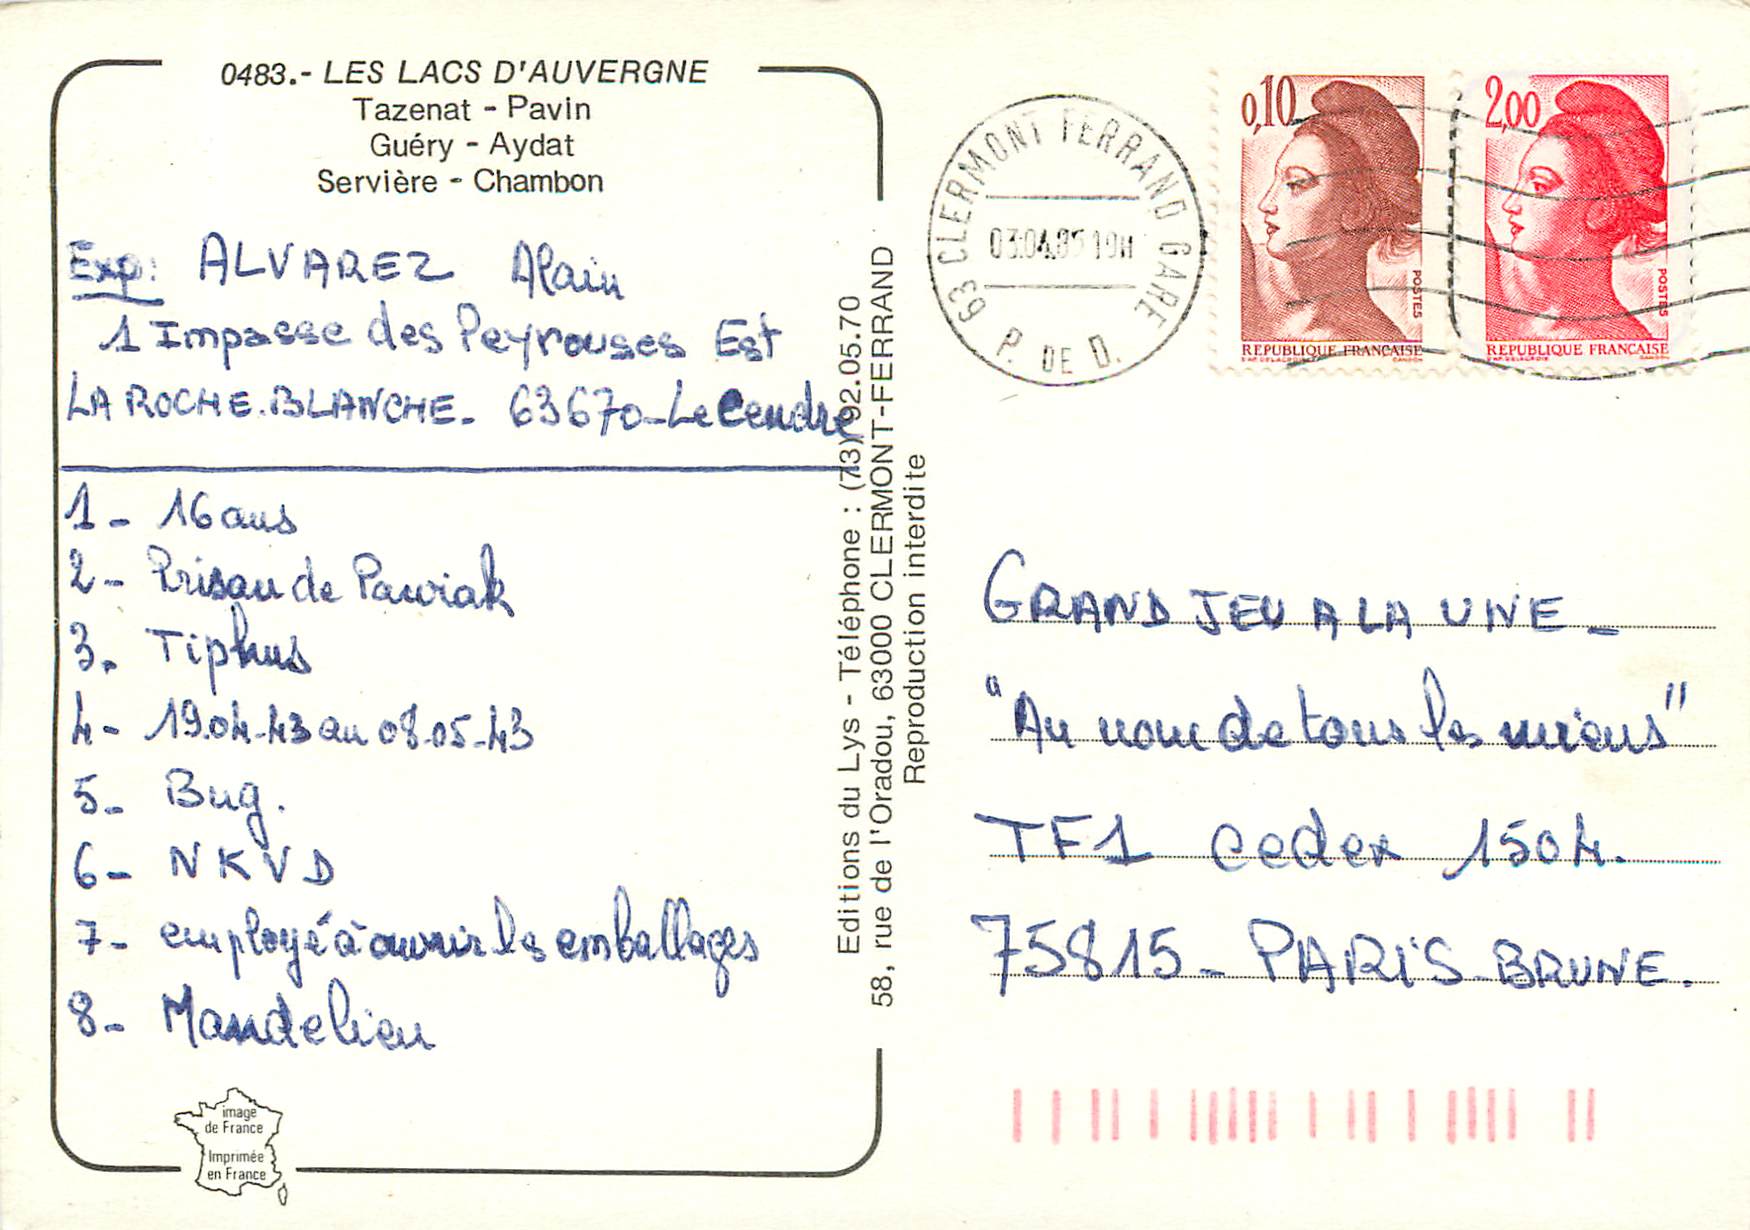 0483.- LES LACS D'AUVERGNE
Tazenat - Pavin
Guéry - Aydat
Servière - Chambon
Exp: ALVAREZ Alain
1 Impasse des Peyrouses Est
LA ROCHE.BLANCHE- 63670-Le Cendre
1- 16 ans
2- Prison de Pawiak
3. Tiphus
4- 19.04-43 au 08.05-43
5- Bug.
6- NKVD
7- employé à ouvrir les emballages
8- Mandelieu
image
de France
Imprimée
en France
Editions du Lys - Téléphone : (73) 92.05.70
58, rue de l'Oradou, 63000 CLERMONT-FERRAND
Reproduction interdite
63 CLERMONT FERRAND GARE
03.04.85 19H
P. DE D.
0,10
POSTES
REPUBLIQUE FRANÇAISE
2,00
POSTES
REPUBLIQUE FRANÇAISE
GRAND JEU A LA UNE-
"Au nom de tous les miens"
TF1 cedex 1504.
75815- PARIS-BRUNE.